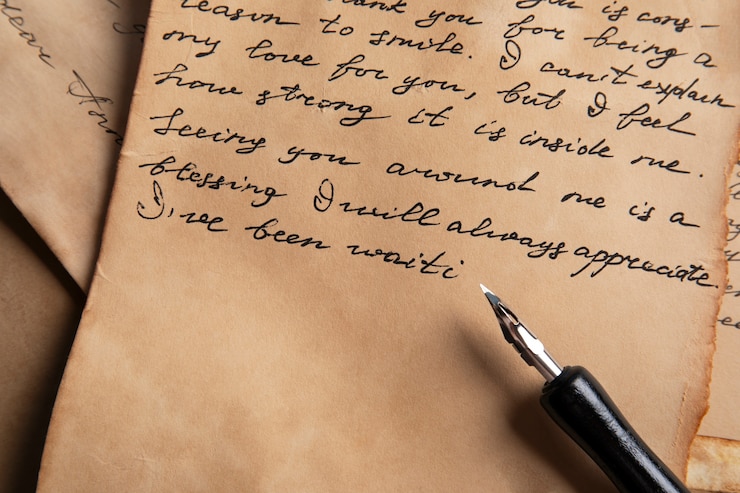 you is cons-
thank you for being a
reason to smile. I can't explain
my love for you, but I feel
how strong it is inside me.
Seeing you around me is a
blessing I will always appreciate.
I've been waiti
dear Ann